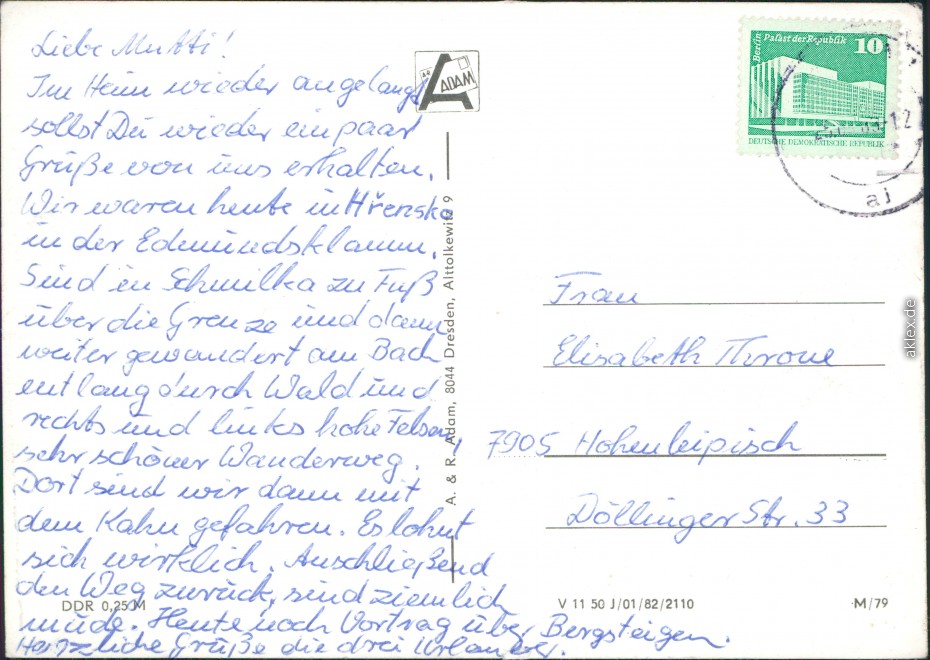 Liebe Mutti!
Im Heim wieder angelangt
sollst Du wieder ein paar
Grüße von uns erhalten.
Wir waren heute in Hřensko
in der Edmundsklamm.
Sind in Schmilka zu Fuß
über die Grenze und dann
weiter gewandert am Bach
entlang durch Wald und
rechts und links hohe Felsen,
sehr schöner Wanderweg.
Dort sind wir dann mit
dem Kahn gefahren. Es lohnt
sich wirklich. Anschließend
den Weg zurück, sind ziemlich
müde. Heute noch Vortrag über Bergsteigen.
Herzliche Grüße die drei Urlauber.
A ADAM
A. & R. Adam, 8044 Dresden, Alttolkewitz 9
Berlin Palast der Republik 10
DEUTSCHE DEMOKRATISCHE REPUBLIK
aj
Frau
Elisabeth Throne
7905 Hohenleipisch
Döllinger Str. 33
DDR 0,25 M
V 11 50 J/01/82/2110
M/79
aklex.de